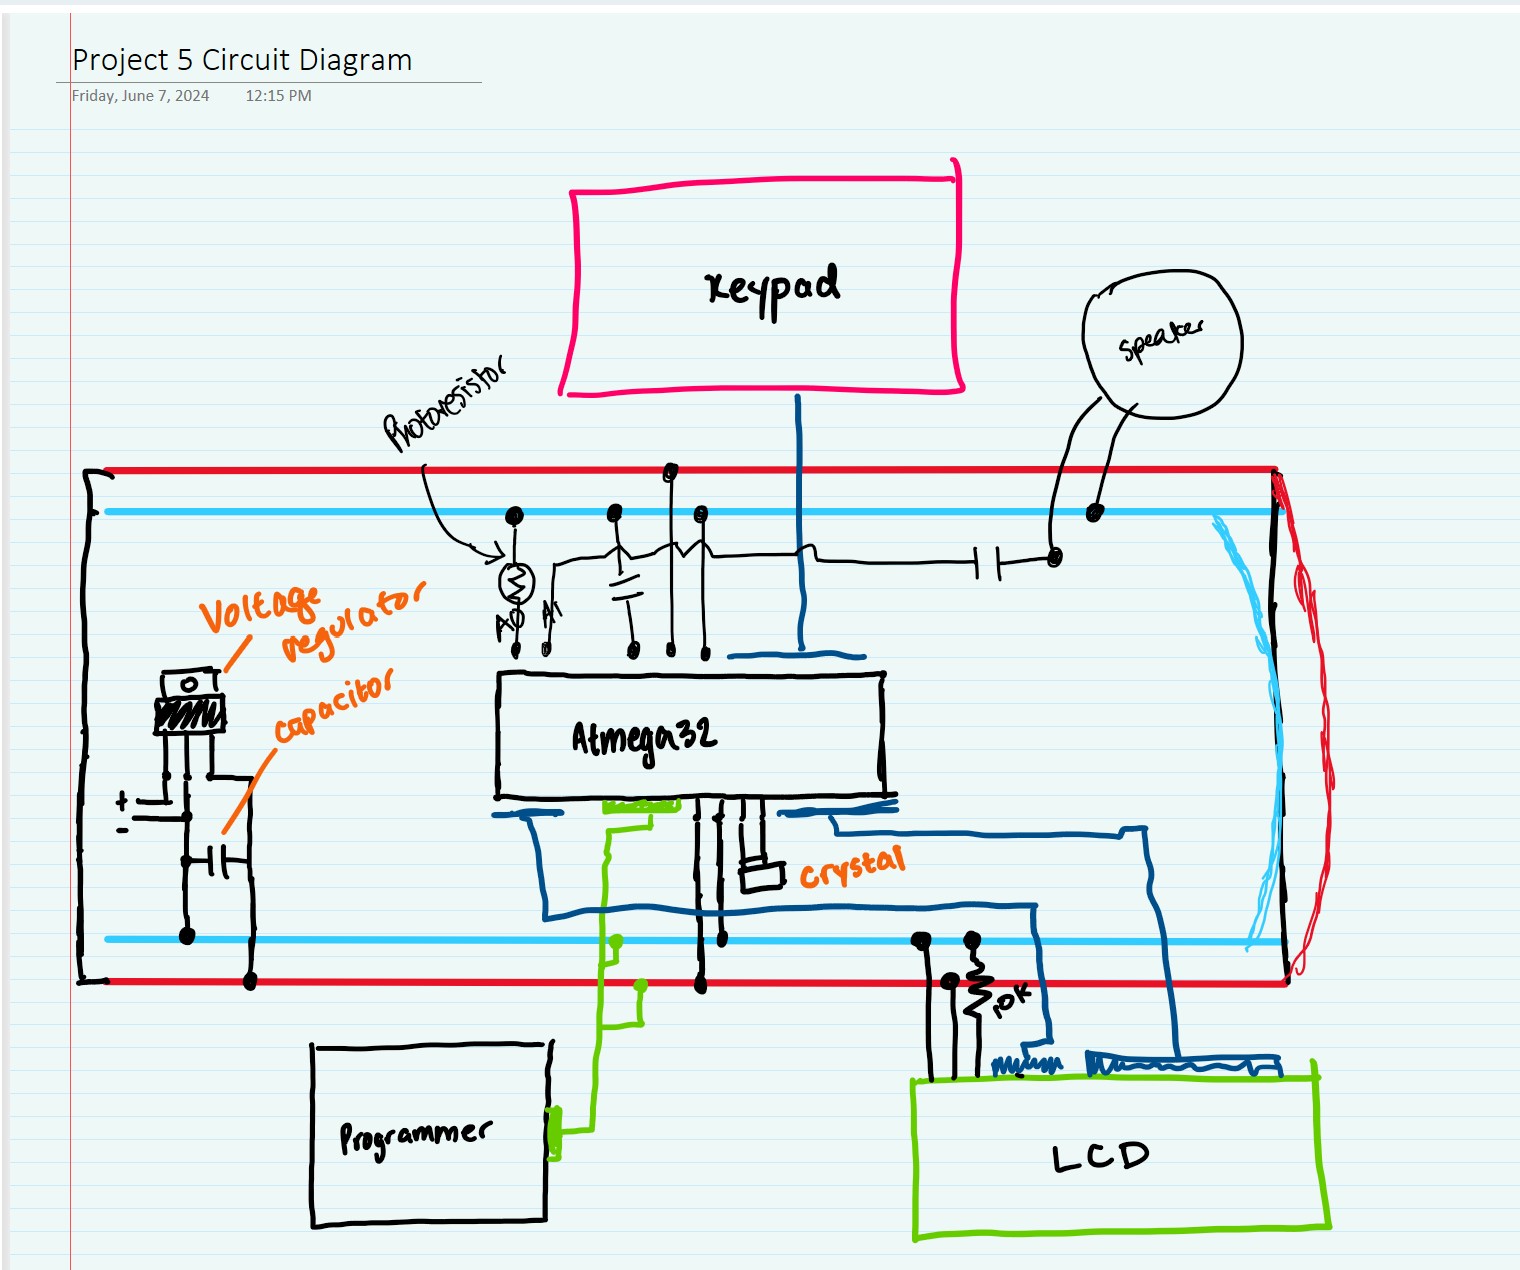 Project 5 Circuit Diagram
Friday, June 7, 2024 12:15 PM
Keypad
Speaker
Photoresistor
A0
A1
Voltage
regulator
capacitor
Atmega32
+
-
crystal
10K
Programmer
LCD